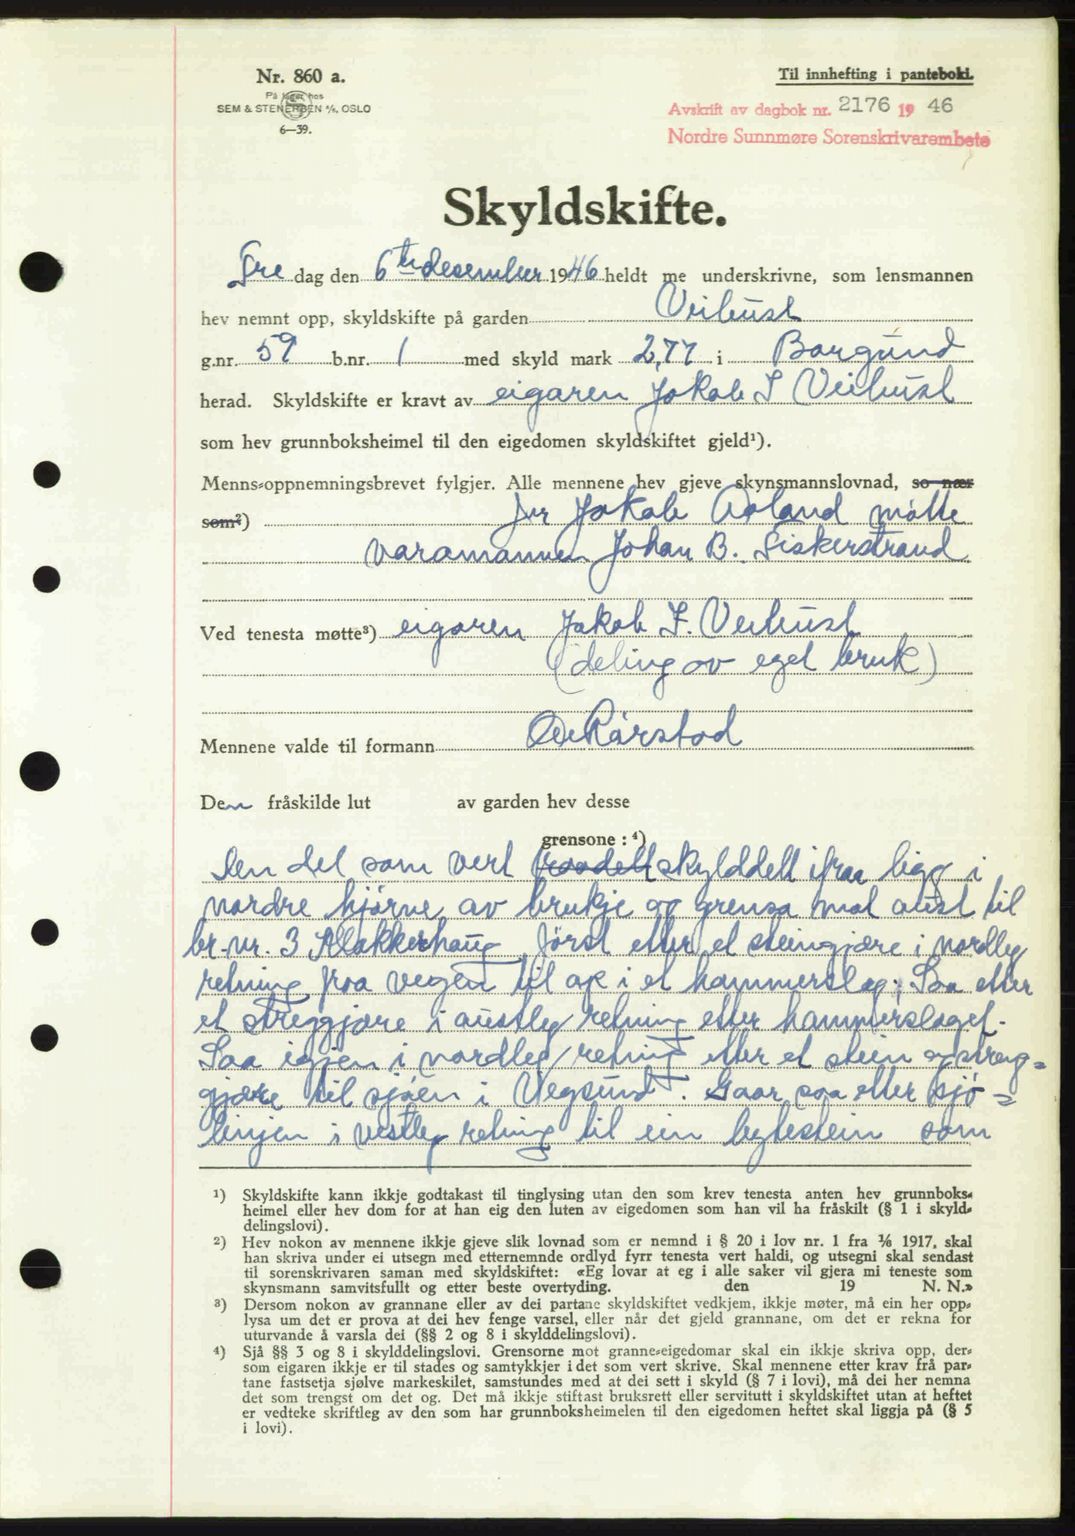 Nr. 860 a.
På lager hos
SEM & STENERSEN A/S, OSLO
6—39.
Til innhefting i panteboki.
Avskrift av dagbok nr. 2176 19 46
Nordre Sunnmøre Sorenskrivarembete
Skyldskifte.
Fre dag den 6te desember 1946 heldt me underskrivne, som lensmannen
hev nemnt opp, skyldskifte på garden Veibust
g.nr. 59 b.nr. 1 med skyld mark 2,77 i Borgund
herad. Skyldskifte er kravt av eigaren Jakob I Veibust
som hev grunnboksheimel til den eigedomen skyldskiftet gjeld¹).
Menns-oppnemningsbrevet fylgjer. Alle mennene hev gjeve skynsmannslovnad, so nær
som²) for Jakob Aaland møtte
varamannen Johan B. Fiskerstrand
Ved tenesta møtte³) eigaren Jakob I. Veibust
(deling av eget bruk)
Mennene valde til formann O. Rørstad
Den fråskilde lut av garden hev desse
grensone : ⁴)
Den del som vert skylddelt ifraa ligg i
nordre hjørne av brukje og grensa mot aust til
br.nr. 3 Klakkehaug først etter et steingjære i nordleg
retning fraa vegen til ap i et hammerslag; Saa etter
et streggjære i austleg retning etter hammerslaget.
Saa igjen i nordleg retning etter et stein og streg-
gjære til sjøen i Vegsund. Gaar saa etter sjø-
linjen i vestleg retning til ein bytestein som
¹) Skyldskifte kann ikkje godtakast til tinglysing utan den som krev tenesta anten hev grunnboks-
heimel eller hev dom for at han eig den luten av eigedomen som han vil ha fråskilt (§ 1 i skyld-
delingslovi).
²) Hev nokon av mennene ikkje gjeve slik lovnad som er nemnd i § 20 i lov nr. 1 fra ⅙ 1917, skal
han skriva under ei utsegn med etternemnde ordlyd fyrr tenesta vert haldi, og utsegni skal sendast
til sorenskrivaren saman med skyldskiftet: «Eg lovar at eg i alle saker vil gjera mi teneste som
skynsmann samvitsfullt og etter beste overtyding. den 19 N. N.»
³) Dersom nokon av grannane eller av dei partane skyldskiftet vedkjem, ikkje møter, må ein her opp-
lysa um det er prova at dei hev fenge varsel, eller når det gjeld grannane, om det er rekna for
uturvande å varsla dei (§§ 2 og 8 i skylddelingslovi).
⁴) Sjå §§ 3 og 8 i skylddelingslovi. Grensorne mot granne-eigedomar skal ein ikkje skriva opp, der-
som eigaren ikkje er til stades og samtykkjer i det som vert skrive. Skal mennene etter krav frå par-
tane fastsetja sjølve markeskilet, samstundes med at dei sett i skyld (§ 7 i lovi), må dei her nemna
det som trengst om det og. Det må ikkje stiftast bruksrett eller servitutt i skyldskiftet utan at heftet
er vedteke skriftleg av den som har grunnboksheimelen til den eigedomen heftet skal liggja på (§ 5
i lovi).